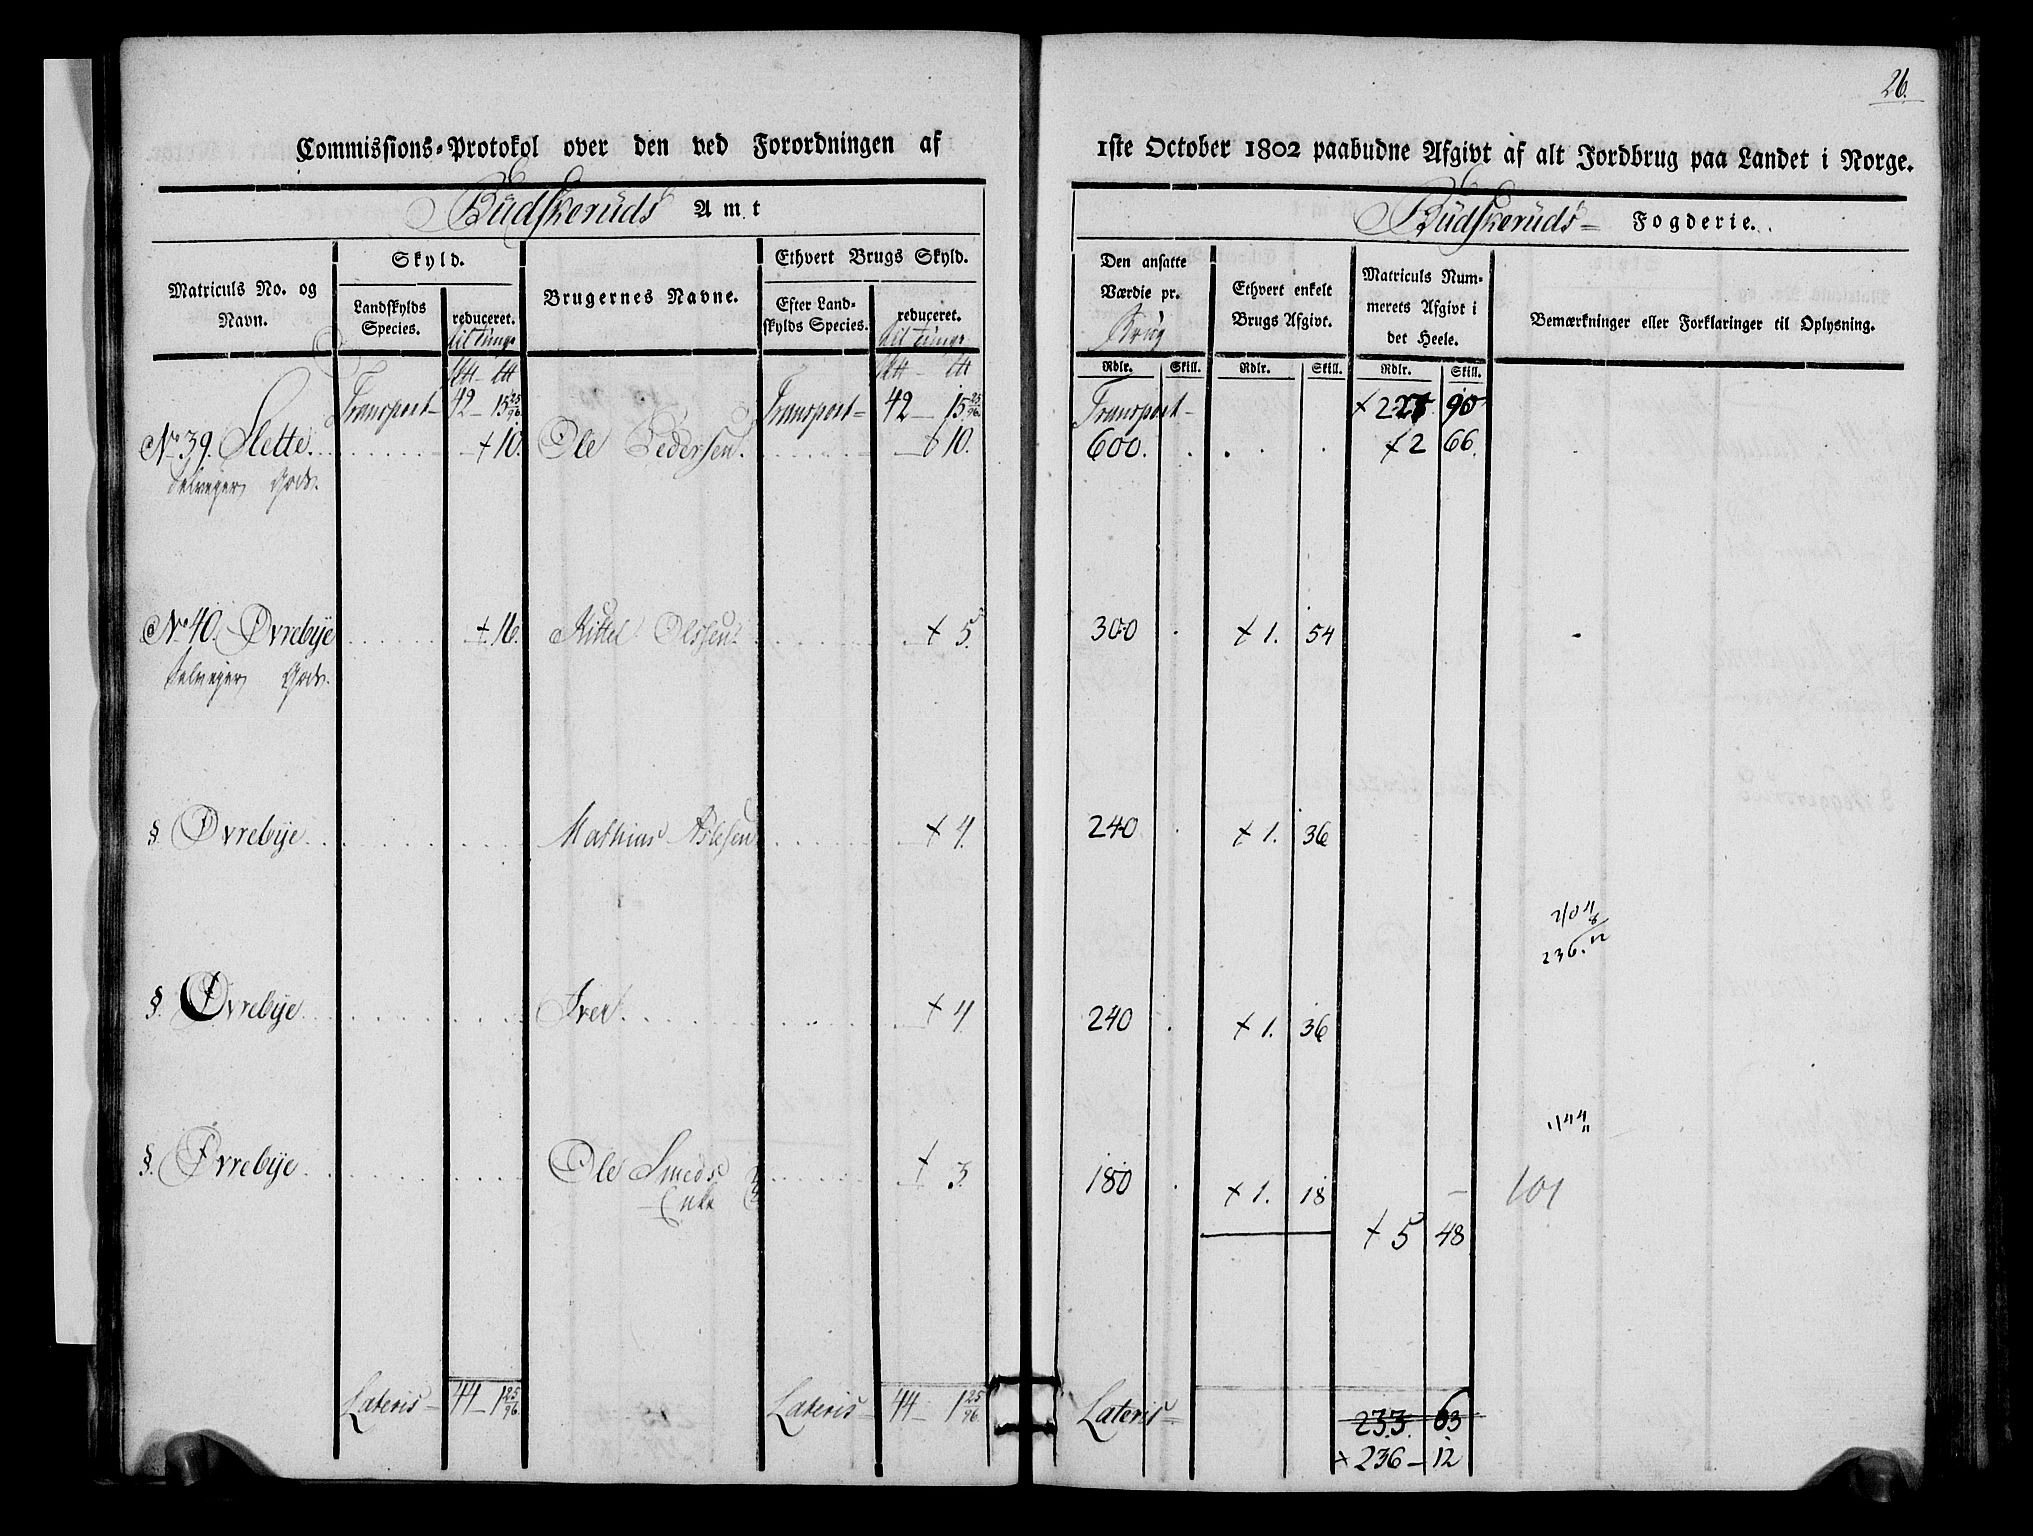 26.
Commissions-Protokol over den ved Forordningen af 1ste October 1802 paabudne Afgivt af alt Jordbrug paa Landet i Norge.
Budskeruds Amt
Budskeruds Fogderie.
Matriculs No. og Navn.
Skyld.
Landskylds Species.
reduceret.
til tunge
Brugernes Navne.
Ethvert Brugs Skyld.
Efter Landskylds Species.
reduceret.
til tunge
Den ansatte Værdie pr.
Brug
Ethvert enkelt Brugs Afgivt.
Matriculs Nummerets Afgivt i det Heele.
Bemærkninger eller Forklaringer til Oplysning.
Rdlr. Skill. Rdlr. Skill. Rdlr. Skill.
Transport 42 - 15 25/96 Transport 42 - 15 25/96. Transport 90
No 39. Slette. + 10. Ole Pedersen. 10. 600. + 2 66.
Selveyer Gods.
No 40. Øvrebye + 16. Kittel Olssen. + 5. 300 + 1. 54
Selveyer Gods.
§ Øvrebye + 4. 240 + 1. 36
Mathias Aslesen
236. 12
§. Øvrebye Iver. + 4 240 + 1. 36
144
§. Øvrebye Ole Smeds + 3. 180 + 1. 18
Enke
101
+ 5 48
Lateris 44 - 1 25/96. Lateris 44 - 1 25/96. Lateris 233. 63
+ 236 - 12